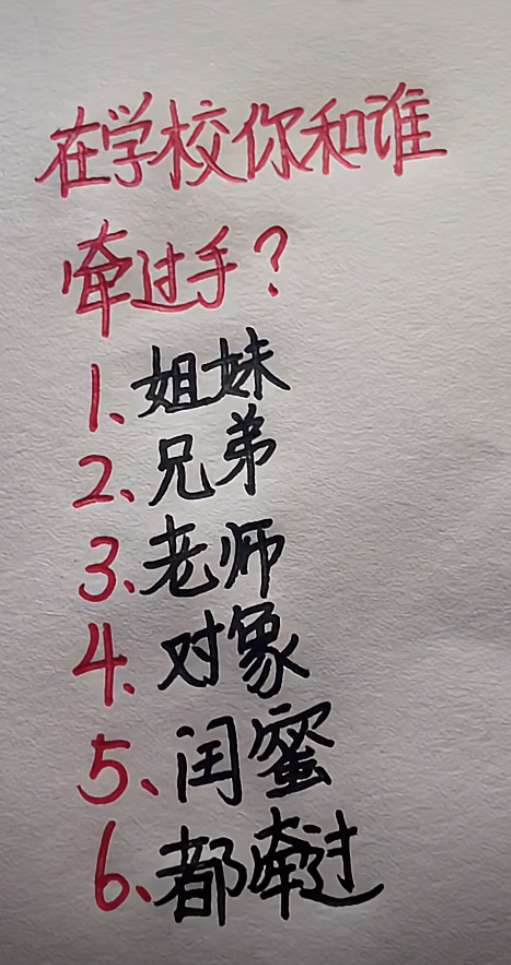 在学校你和谁
牵过手？
1、姐妹
2、兄弟
3、老师
4、对象
5、闺蜜
6、都牵过